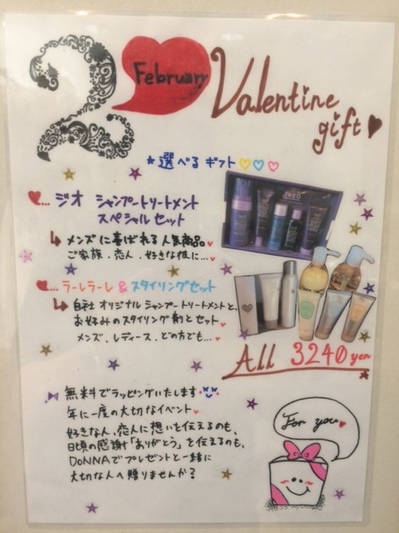 2 February Valentine
gift
*選べるギフト
…ジオ シャンプートリートメント
スペシャルセット
↳メンズに喜ばれる人気商品
ご家族、恋人、好きな彼に…
…ラーレラーレ&スタイリングセット
↳自社オリジナルシャンプートリートメントと、
お好みのスタイリング剤とセット
メンズ、レディース、どの方でも…
All 3240yen
無料でラッピングいたします
年に一度の大切なイベント
好きな人、恋人に想いを伝えるのも、
日頃の感謝「ありがとう」を伝えるのも、
DONNAでプレゼントと一緒に
大切な人へ贈りませんか?
For you